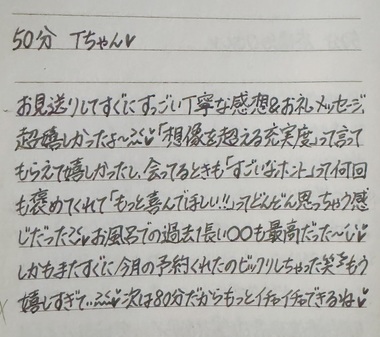 50分 Tちゃん♥
お見送りしてすぐにすっごい丁寧な感想&お礼メッセージ、
超嬉しかったよ〜♥「想像を超える充実度」って言って
もらえて嬉しかったし、会ってるときも「すごいなホント」って何回
も褒めてくれて「もっと喜んでほしい!!」ってどんどん思っちゃう感
じだった♥お風呂での過去1長い〇〇も最高だった〜
しかもまたすぐに今月の予約くれたのビックリしちゃった笑 もう
嬉しすぎて♥次は80分だからもっとイチャイチャできるね♥